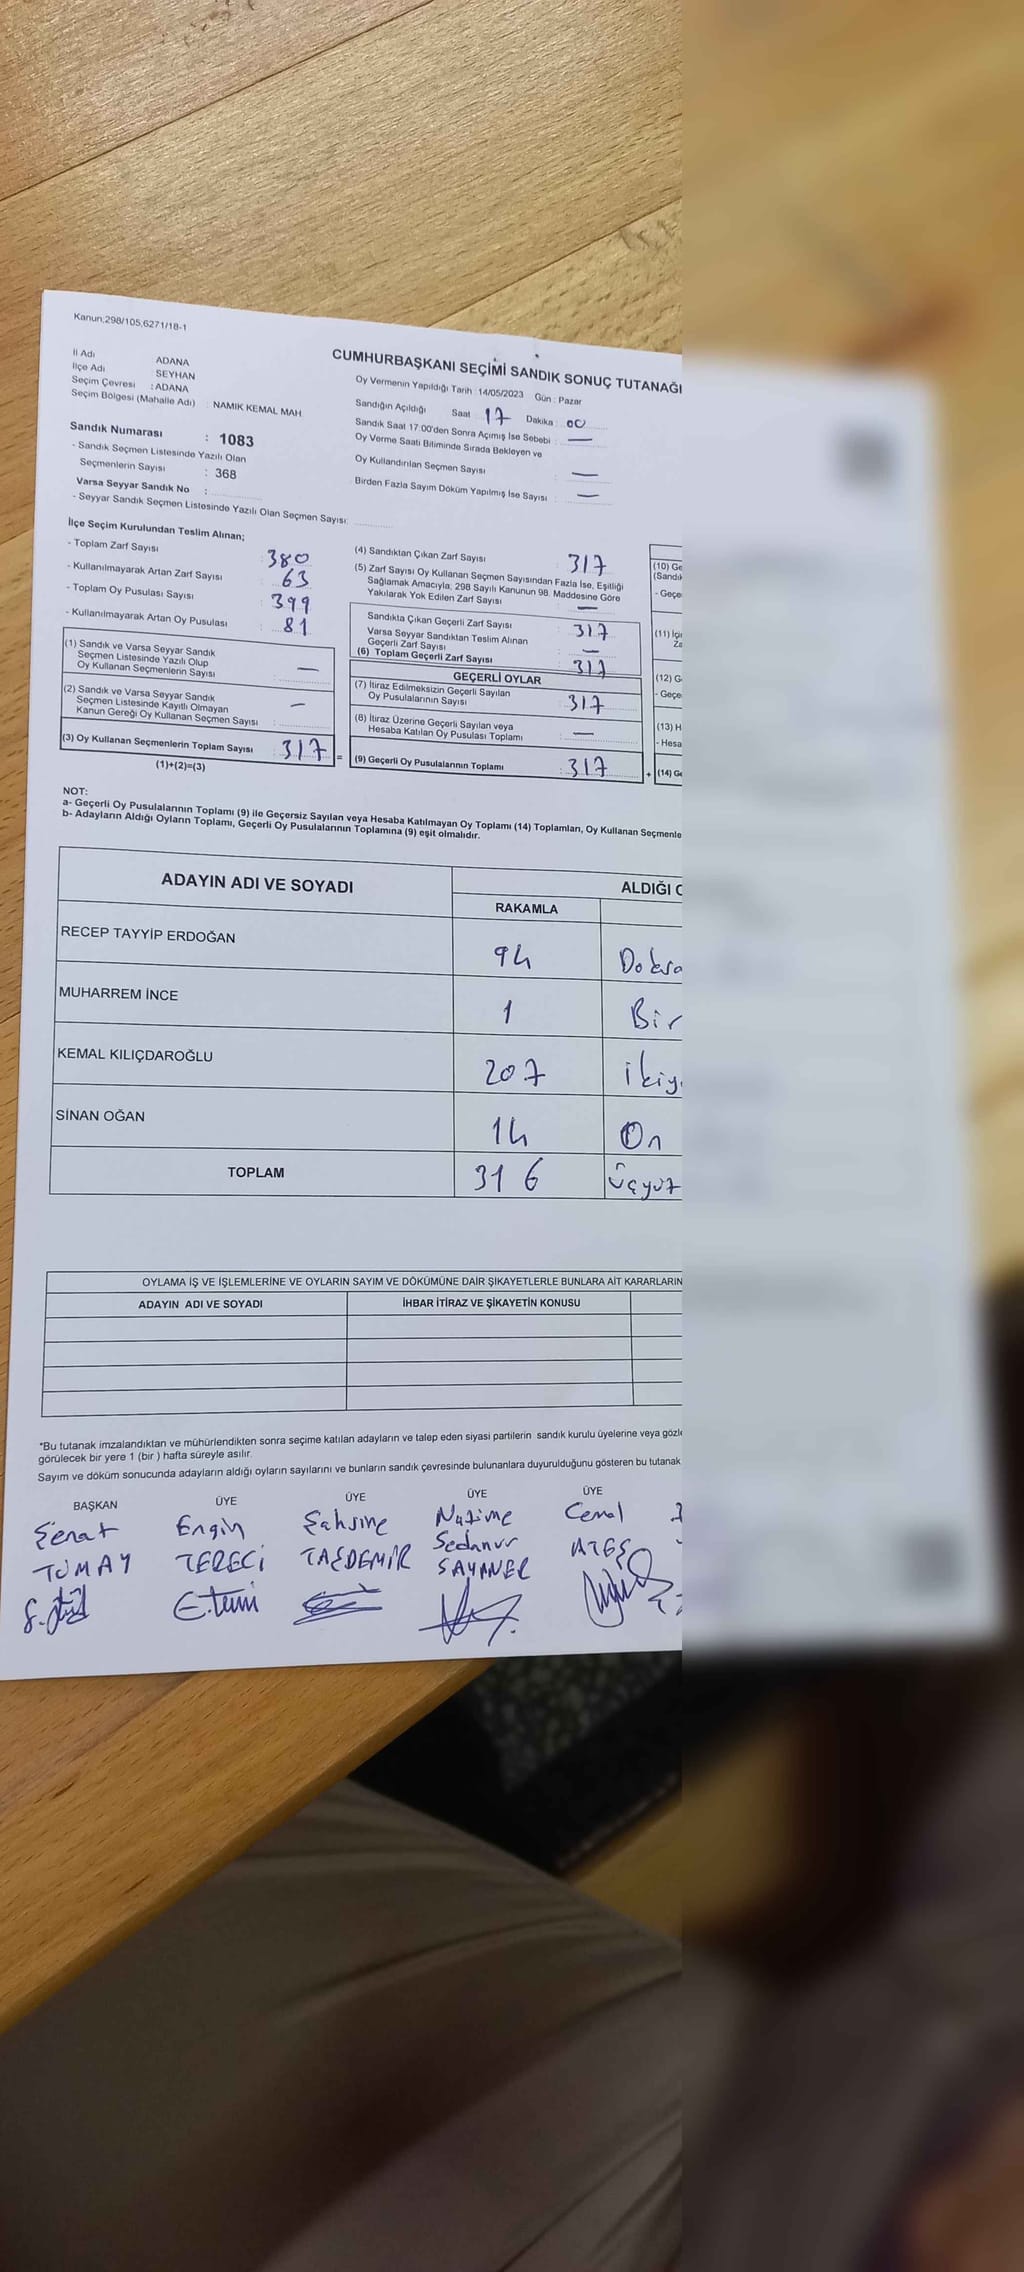 Kanun;298/105,6271/18-1
CUMHURBAŞKANI SEÇİMİ SANDIK SONUÇ TUTANAĞI
İl Adı ADANA
İlçe Adı SEYHAN
Seçim Çevresi : ADANA
Seçim Bölgesi (Mahalle Adı) : NAMIK KEMAL MAH.
Sandık Numarası : 1083
- Sandık Seçmen Listesinde Yazılı Olan
Seçmenlerin Sayısı : 368
Varsa Seyyar Sandık No :
- Seyyar Sandık Seçmen Listesinde Yazılı Olan Seçmen Sayısı:
Oy Vermenin Yapıldığı Tarih : 14/05/2023 Gün : Pazar
Sandığın Açıldığı Saat 17 Dakika : 00
Sandık Saat 17:00'den Sonra Açımış İse Sebebi : —
Oy Verme Saati Bitiminde Sırada Bekleyen ve
Oy Kullandırılan Seçmen Sayısı : —
Birden Fazla Sayım Döküm Yapılmış İse Sayısı : —
İlçe Seçim Kurulundan Teslim Alınan;
- Toplam Zarf Sayısı : 380
- Kullanılmayarak Artan Zarf Sayısı : 63
- Toplam Oy Pusulası Sayısı : 399
- Kullanılmayarak Artan Oy Pusulası : 81
(1) Sandık ve Varsa Seyyar Sandık
Seçmen Listesinde Yazılı Olup
Oy Kullanan Seçmenlerin Sayısı : —
(2) Sandık ve Varsa Seyyar Sandık
Seçmen Listesinde Kayıtlı Olmayan
Kanun Gereği Oy Kullanan Seçmen Sayısı : —
(3) Oy Kullanan Seçmenlerin Toplam Sayısı : 317 =
(1)+(2)=(3)
(4) Sandıktan Çıkan Zarf Sayısı : 317
(5) Zarf Sayısı Oy Kullanan Seçmen Sayısından Fazla İse, Eşitliği
Sağlamak Amacıyla; 298 Sayılı Kanunun 98. Maddesine Göre
Yakılarak Yok Edilen Zarf Sayısı : —
Sandıkta Çıkan Geçerli Zarf Sayısı : 317
Varsa Seyyar Sandıktan Teslim Alınan
Geçerli Zarf Sayısı : —
(6) Toplam Geçerli Zarf Sayısı : 317
GEÇERLİ OYLAR
(7) İtiraz Edilmeksizin Geçerli Sayılan
Oy Pusulalarının Sayısı : 317
(8) İtiraz Üzerine Geçerli Sayılan veya
Hesaba Katılan Oy Pusulası Toplamı : —
(9) Geçerli Oy Pusulalarının Toplamı : 317 +
(10) Ge
(Sandık
- Geçe
(11) İçi
Za
(12) G
- Geçe
(13) H
- Hesa
(14) Ge
NOT:
a- Geçerli Oy Pusulalarının Toplamı (9) ile Geçersiz Sayılan veya Hesaba Katılmayan Oy Toplamı (14) Toplamları, Oy Kullanan Seçmenle
b- Adayların Aldığı Oyların Toplamı, Geçerli Oy Pusulalarının Toplamına (9) eşit olmalıdır.
ADAYIN ADI VE SOYADI ALDIĞI O
RAKAMLA
RECEP TAYYİP ERDOĞAN 94 Doksa
MUHARREM İNCE 1 Bir
KEMAL KILIÇDAROĞLU 207 İkiy
SİNAN OĞAN 14 On
TOPLAM 316 Üçyüz
OYLAMA İŞ VE İŞLEMLERİNE VE OYLARIN SAYIM VE DÖKÜMÜNE DAİR ŞİKAYETLERLE BUNLARA AİT KARARLARIN
ADAYIN ADI VE SOYADI İHBAR İTİRAZ VE ŞİKAYETİN KONUSU
*Bu tutanak imzalandıktan ve mühürlendikten sonra seçime katılan adayların ve talep eden siyasi partilerin sandık kurulu üyelerine veya gözle
görülecek bir yere 1 (bir ) hafta süreyle asılır.
Sayım ve döküm sonucunda adayların aldığı oyların sayılarını ve bunların sandık çevresinde bulunanlara duyurulduğunu gösteren bu tutanak
BAŞKAN ÜYE ÜYE ÜYE ÜYE
Engin Şahsine Nazime Cemal
TÜMAY TERECİ TAŞDEMİR Sedanur ATEŞ
SAYANER